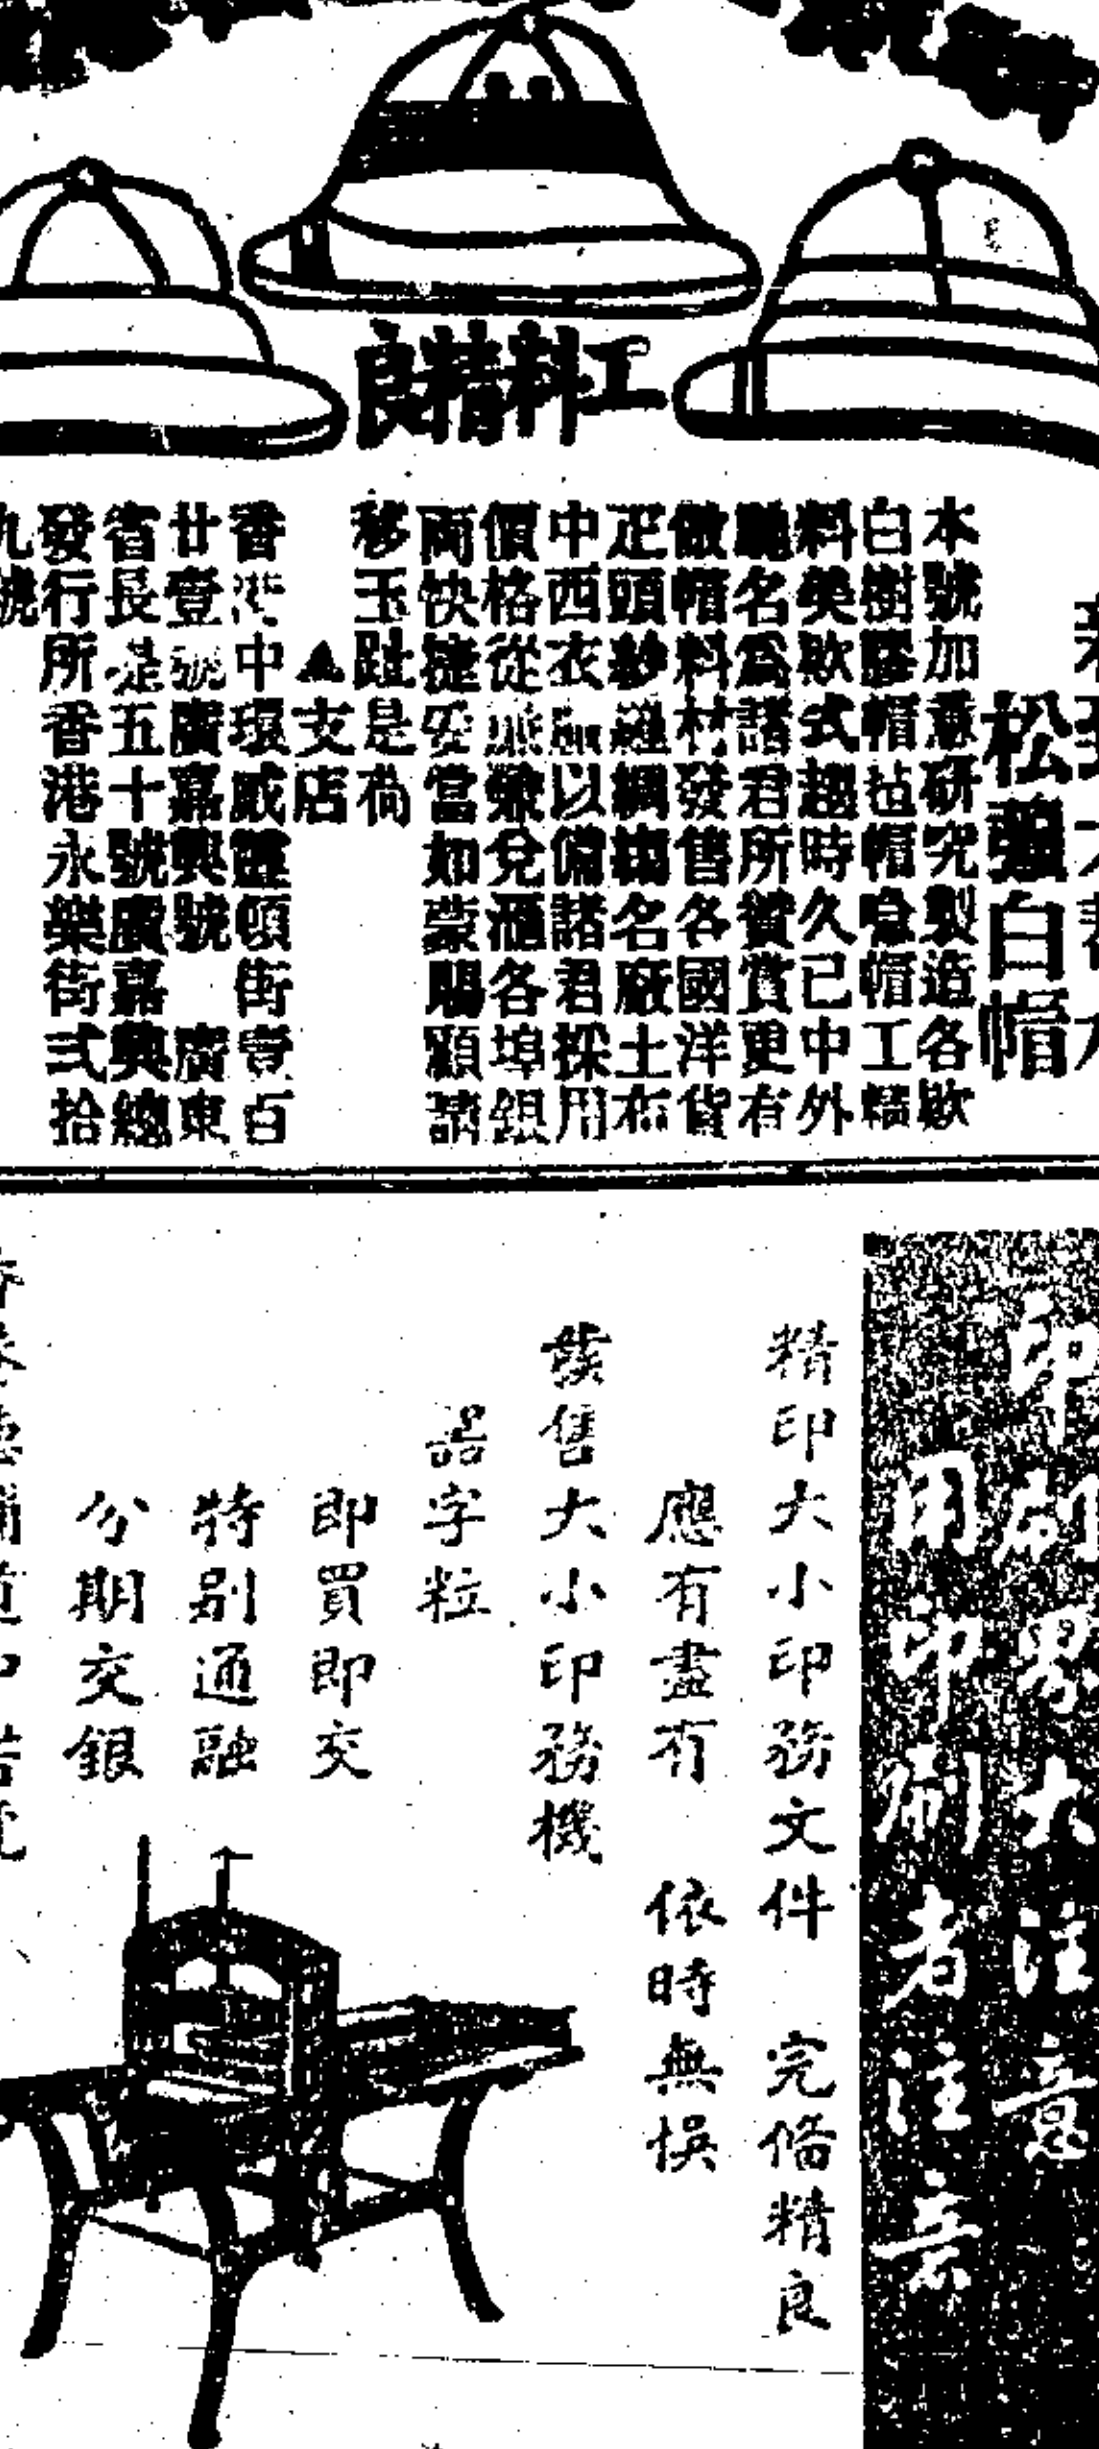 工料精良
松強白帽
本號加意研究製造各欵
白樹膠帽毡帽帽工精
料美欵式趨時久已中外
馳名爲諸君所賛賞更有
做帽料材發售各國洋貨
疋頭紗綢名廠土布
中西衣以備諸君採用
價格從廉兼兌滙各埠銀
兩快捷妥當如蒙賜顧請
移玉趾是荷
▲支店
香港中環威靈頓街壹百
廿壹號廣嘉興號 廣東
省長堤五十號廣嘉興總
發行所香港永樂街式拾
九號
印刷界大注意
用印刷者注意
精印大小印務文件 完備精良
應有盡有 依時無悞
發售大小印務機
器字粒
即買即交
特別通融
分期交銀